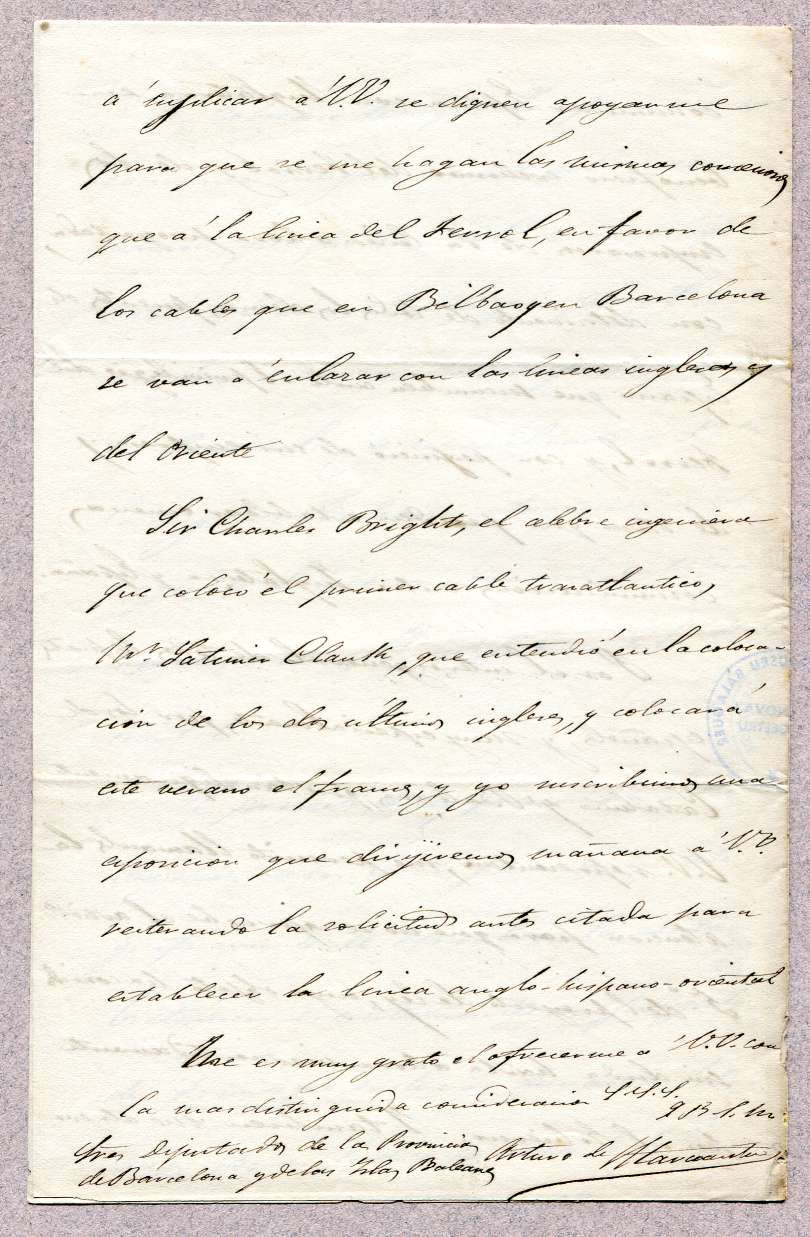 á suplicar á V.V. se dignen apoyarme
para que se me hagan las mismas concesiones
que á la linea del Ferrol, en favor de
los cables que en Bilbao y en Barcelona
se van á enlazar con las lineas inglesas y
del Oriente
Sir Charles Bright, el celebre ingeniero
que colocó el primer cable trasatlantico,
Mr. Latimer Clark, que entendió en la coloca-
cion de los dos últimos ingleses, y colocará
este verano el frances, y yo suscribimos una
esposicion que dirijiremos mañana á V.V.
reiterando la solicitud antes citada para
establecer la linea anglo-hispano-oriental
Me es muy grato el ofrecerme a V.V. con
la mas distinguida consideracion S.S.S.
q B. S. M.
Sres Diputados de la Provincia Arturo de Marcoartu
de Barcelona y de las Islas Baleares
MUSEU BALAGUER